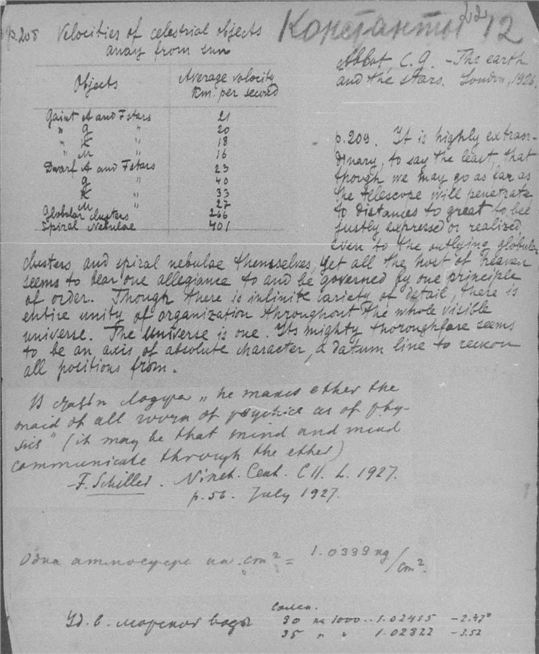 Константы 12
p. 208 Velocities of celestrial objects
away from sun
Abbot C. G. - The earth
and the stars. London, 1926.
Objects Average velocity
Km. per second
Gaint A and F stars 21
" G " 20
" K " 18
" M " 16
Dwarf A and F stars 23
" G "
" K " 33
" M " 27
Globular clusters 266
Spiral Nebulae 401
p. 209. It is highly extraor-
dinary, to say the least, that
though we may go as far as
the telescope will penetrate
to distances to great to be
justly expressed or realised,
even to the outlying globular
clusters and spiral nebulae themselves, yet all the host of heaven
seems to bear one allegiance to and be governed by one principle
of order. Though there is infinite variety of detail, there is
entire unity of organization throughout the whole visible
universe. The universe is one. Its mighty thoroughfare seems
to be an axis of absolute character, a datum line to reckon
all positions from.
" he makes ether the
maid of all work of psychics as of phy-
sics" (it may be that mind and mind
communicate through the ether)
F. Schiller. Ninet. Cent. CII. L. 1927.
p. 56. July 1927.
Одна атмосфера на cm² = 1.0333 kg/cm².
Солен.
Уд. в. морской воды 30 на 1000 .. 1.02415 -2.47°
35 " " 1.02822 -3.52